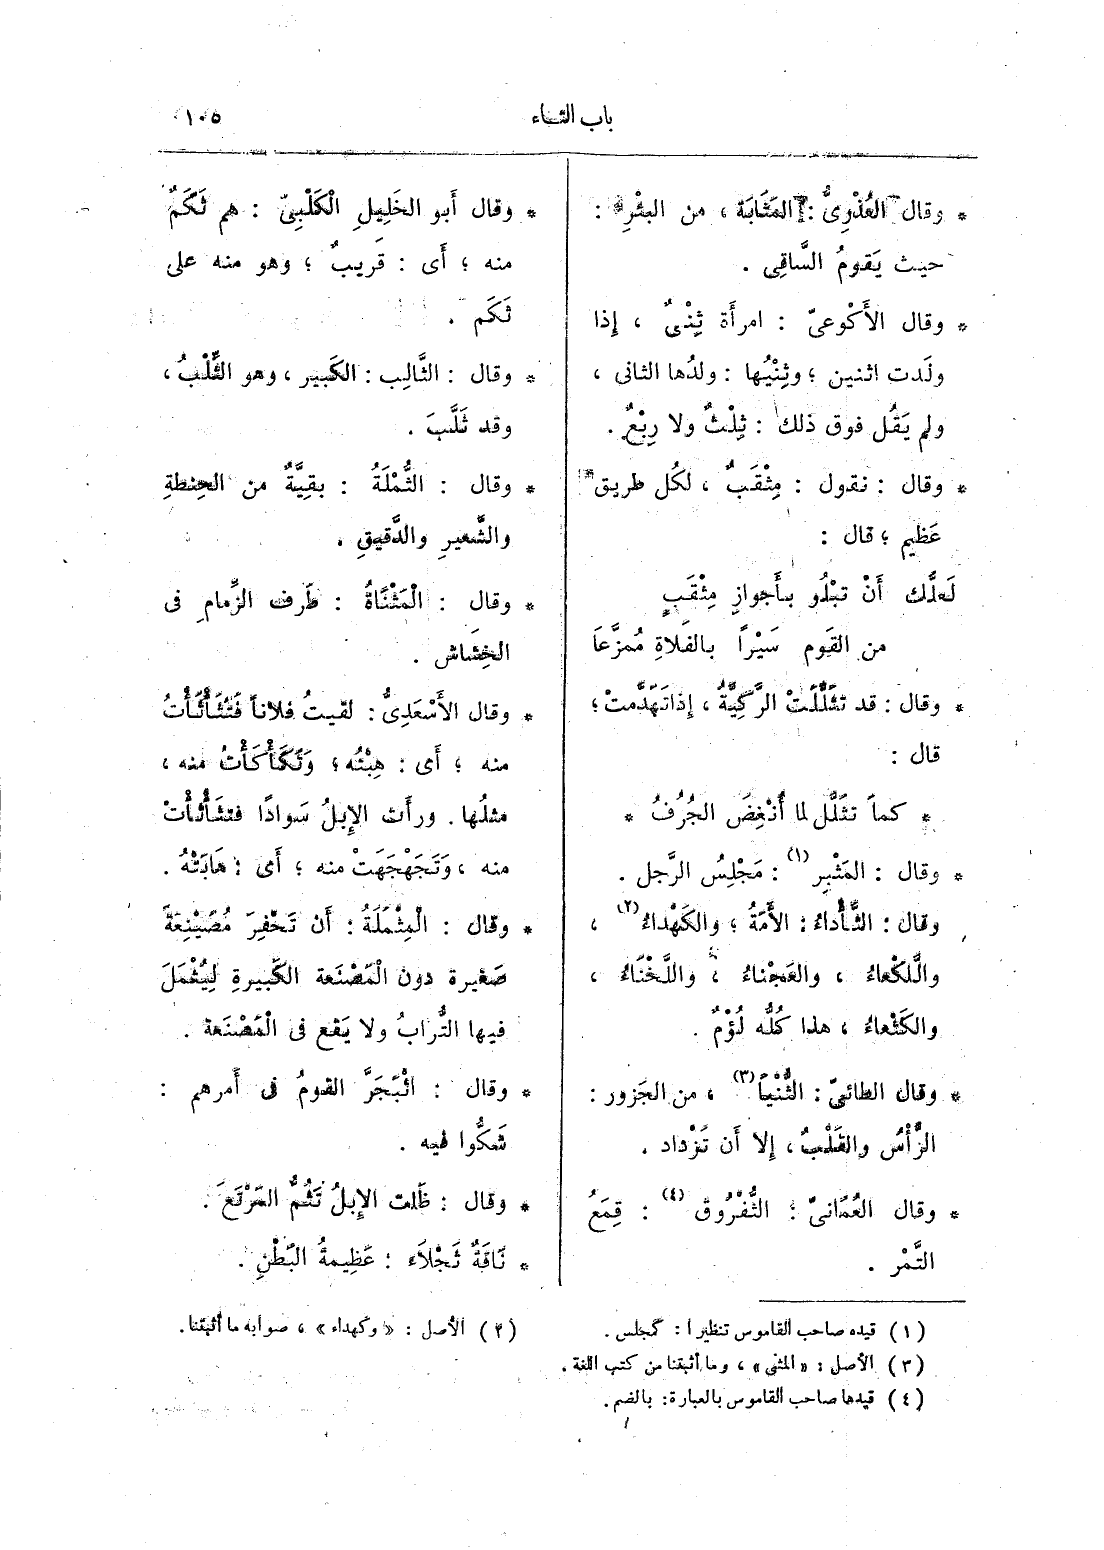 باب الثاء
١٠٥
* وقال العُذْوِىُّ : المَثَابَة ، من البئْرِ :
حيث يَقومُ السَّاقِى .
* وقال الأَكْوعىّ : امرأَة ثِنْىٌ ، إِذا
ولَدت اثنين ؛ وثِنْيُها : ولدُها الثانى ،
ولم يَقُل فوق ذلك : ثِلْثٌ ولا رِبْعٌ .
* وقال : نقول : مِثْقَبٌ ، لكُل طريق
عَظِيم ؛ قال :
لَعلَّك أَنْ تبْلُو بأَجوازِ مِثْقَبٍ
من القَوم سَيْراً بالفَلاةِ مُمزَّعَا
* وقال : قد تثَلَّلَتْ الرَّكِيَّةُ ، إِذا تَهَدَّمتْ ؛
قال :
* كماَ تثَلَّل لما أُنْغِضَ الجُرُفُ *
* وقال : المَثْبِر (١) : مَجْلِسُ الرَّجل .
وقال : الثَّأْداءُ : الأَمَةُ ؛ والكَهْداءُ (٢) ،
واللَّكْعاءُ ، والعَجْناءُ ، واللَّخْنَاءُ ،
والكَثْعاءُ ، هذا كُلُّه لُؤْمٌ .
* وقال الطائىّ : الثُّنْيَا (٣) ، من الجَزور :
الرَّأْسُ والقَلْبُ ، إِلا أَن تَزْداد .
* وقال العُمَانىّ : الثُّفْرُوق (٤) : قِمَعُ
التَّمْر .
* وقال أَبو الخَلِيلِ الْكَلْبِىّ : هم ثَكَمٌ
منه ؛ أَى : قَرِيبٌ ؛ وهو منه على
ثَكَم .
* وقال : الثَّالِب : الكَبير ، وهو الثِّلْبُ ،
وقد ثَلَّبَ .
* وقال : الثُّمْلَةُ : بقيَّةٌ من الحِنطةِ
والشَّعيرِ والدَّقيقِ .
* وقال : الْمَثْنَاةُ : طَرف الزِّمامِ فى
الخِشَاش .
* وقال الأَسْعَدِىُّ : لقيتُ فلاناً فَتَثَأْثَأْتُ
منه ؛ أَى : هِبْتُه ؛ وَتَكَأْكَأْتُ منه ،
مثلُها . ورأَت الإِبلُ سَوادًا فتثَأْثأَتْ
منه ، وَتَجَهْجَهَتْ منه ؛ أَى : هَابَتْهُ .
* وقال : الْمِثْمَلَةُ : أَن تَحْفِرَ مُصَيْنِعَةً
صَغيرة دون الْمَصْنَعة الكَبيرةِ لِيُثْمَلَ
فيها التُّرابُ ولا يَقع فى الْمَصْنَعة .
* وقال : اثْبَجَرَّ القومُ فى أَمرهم :
شَكُّوا فيه .
* وقال : ظَلت الإِبلُ تَثُمُّ المَرْتَعَ .
* نَاقَةٌ ثَجْلاَء : عَظِيمةُ البَطْنِ .
(١) قيده صاحب القاموس تنظيرا : كمجلس .
(٢) الأصل : «وكهداء» ، صوابه ما أثبتنا .
(٣) الأصل : «المثنى» ، وما أثبتنا من كتب اللغة .
(٤) قيدها صاحب القاموس بالعبارة : بالضم .